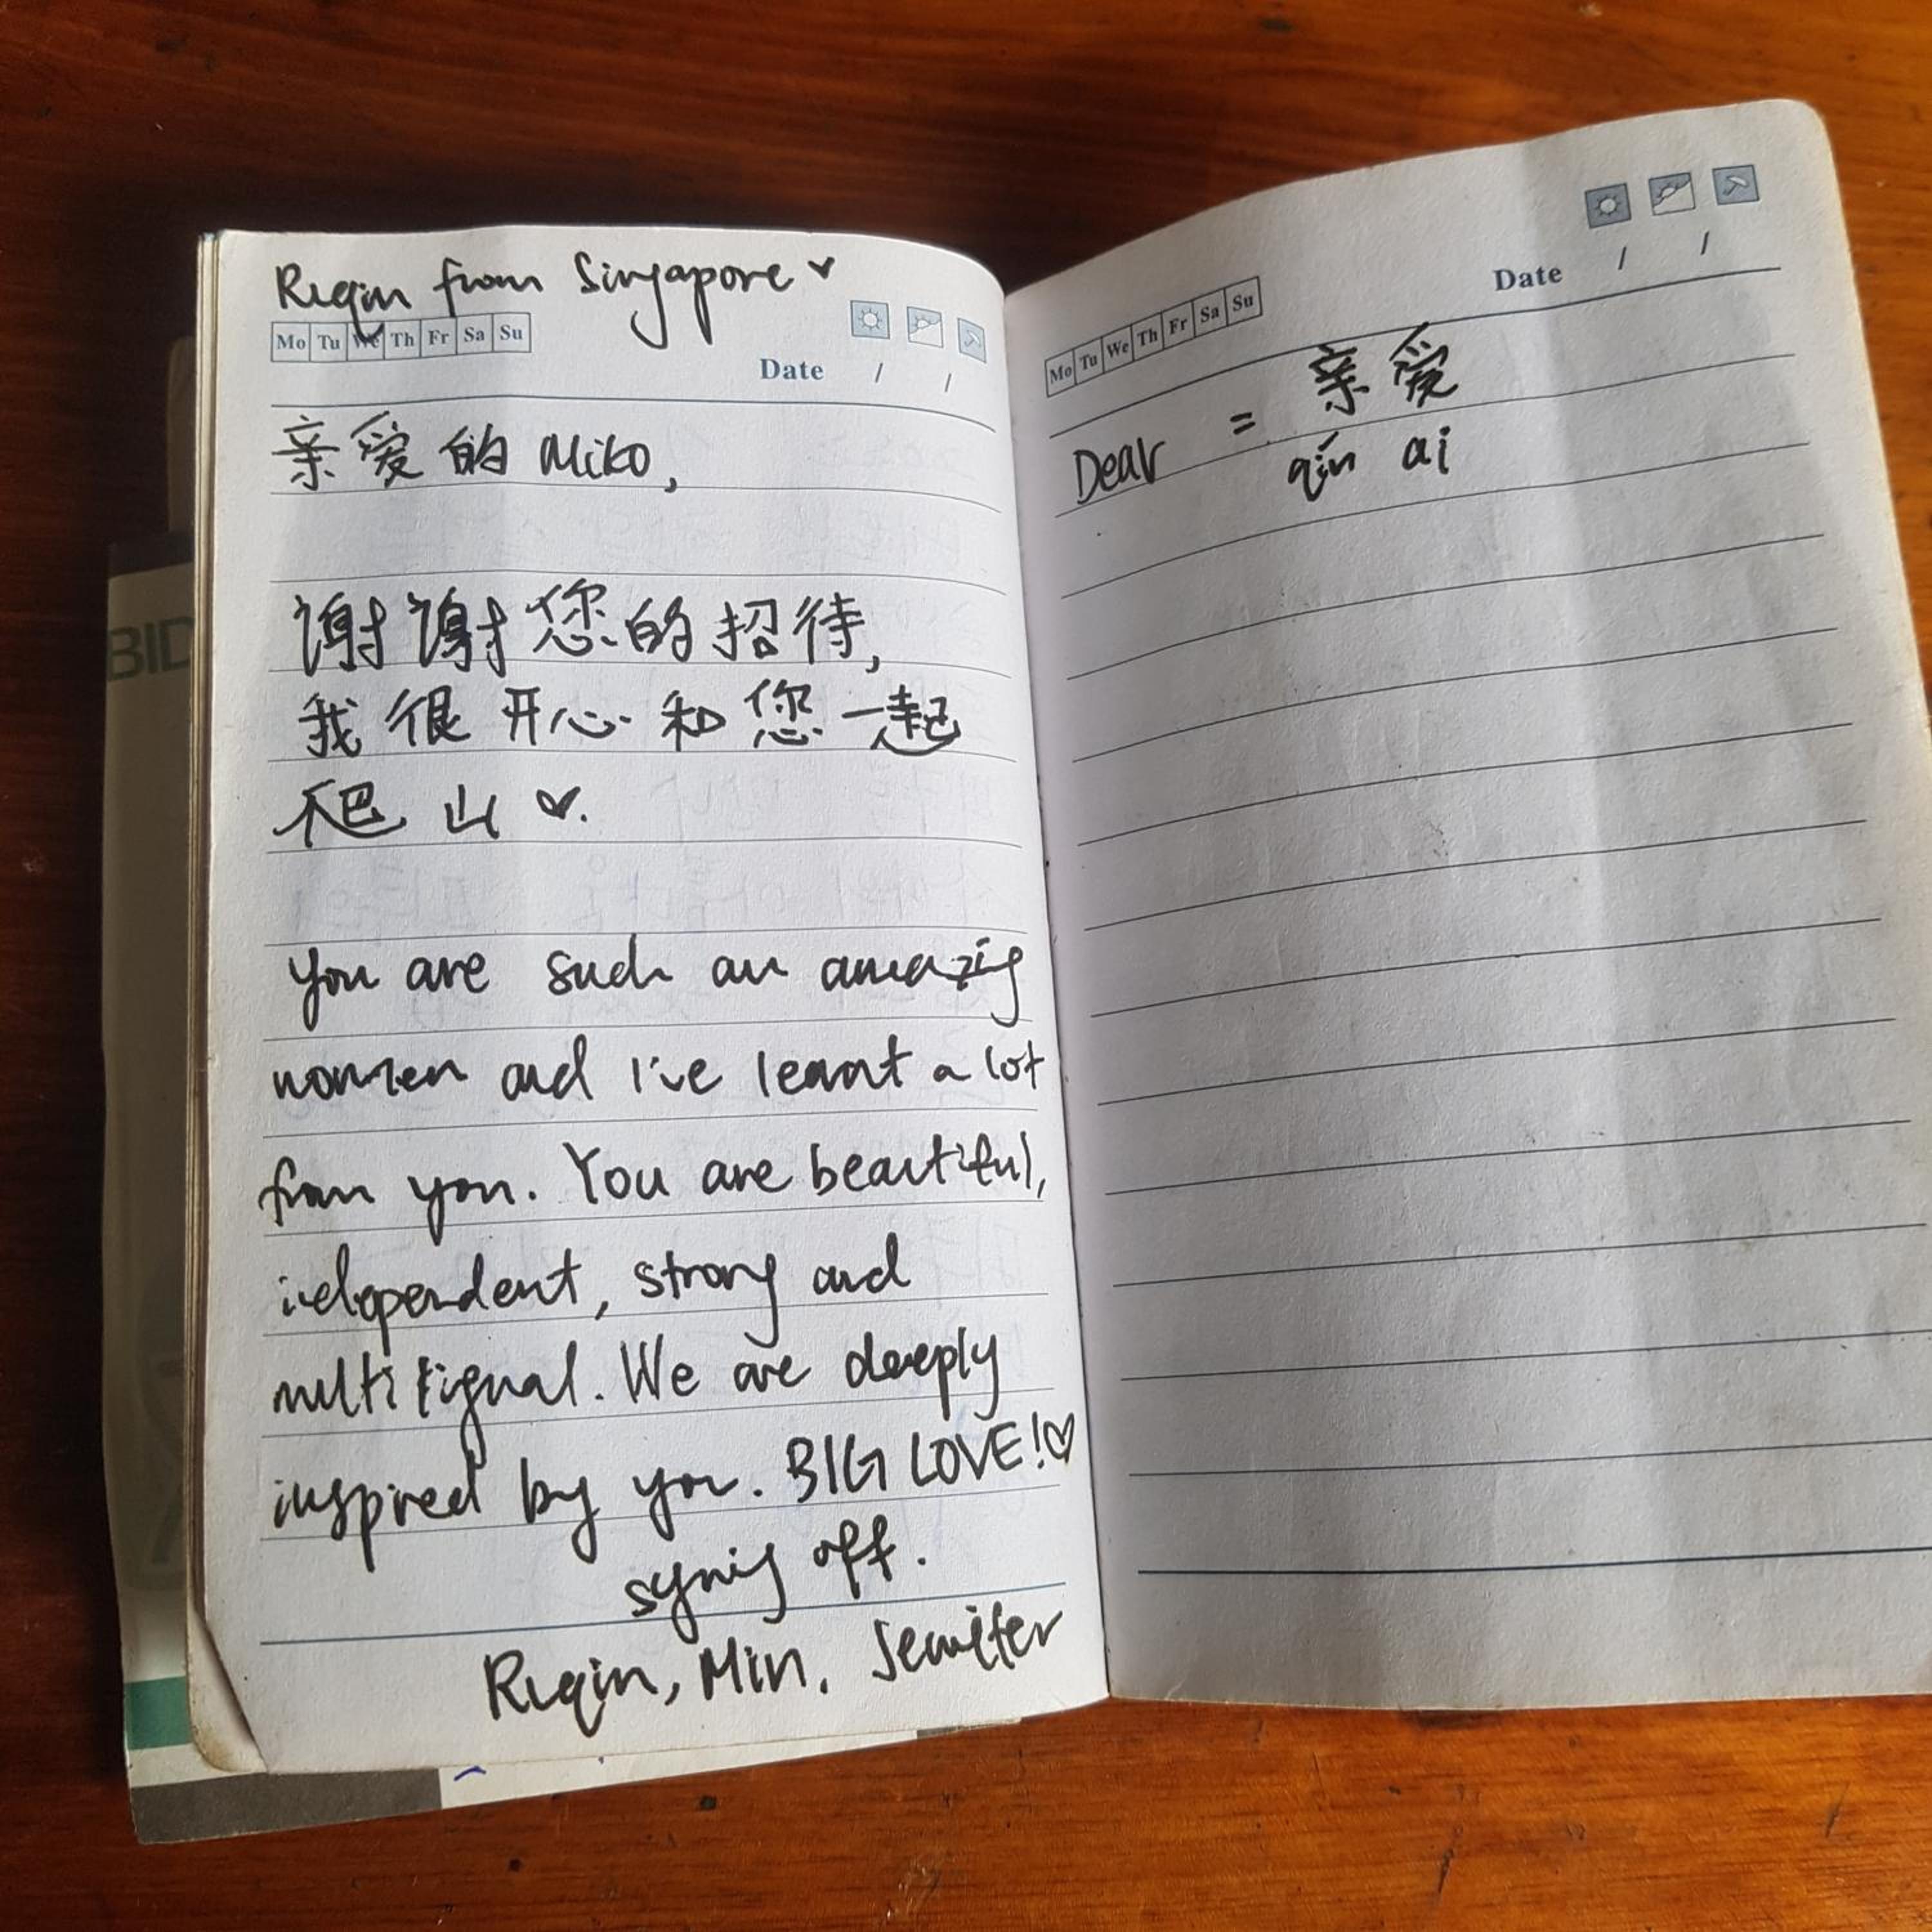 Ruqin from Singapore
Mo Tu We Th Fr Sa Su
Date / /
亲爱的 Miko,
谢谢您的招待,
我很开心和您一起
爬山
You are such an amazing
women and I've learnt a lot
from you. You are beautiful,
independent, strong and
multilignal. We are deeply
inspired by you. BIG LOVE!
off.
Ruqin, Min, Jennifer
BID
Mo Tu We Th Fr Sa Su
Date / /
Dear = 亲爱
qín ai